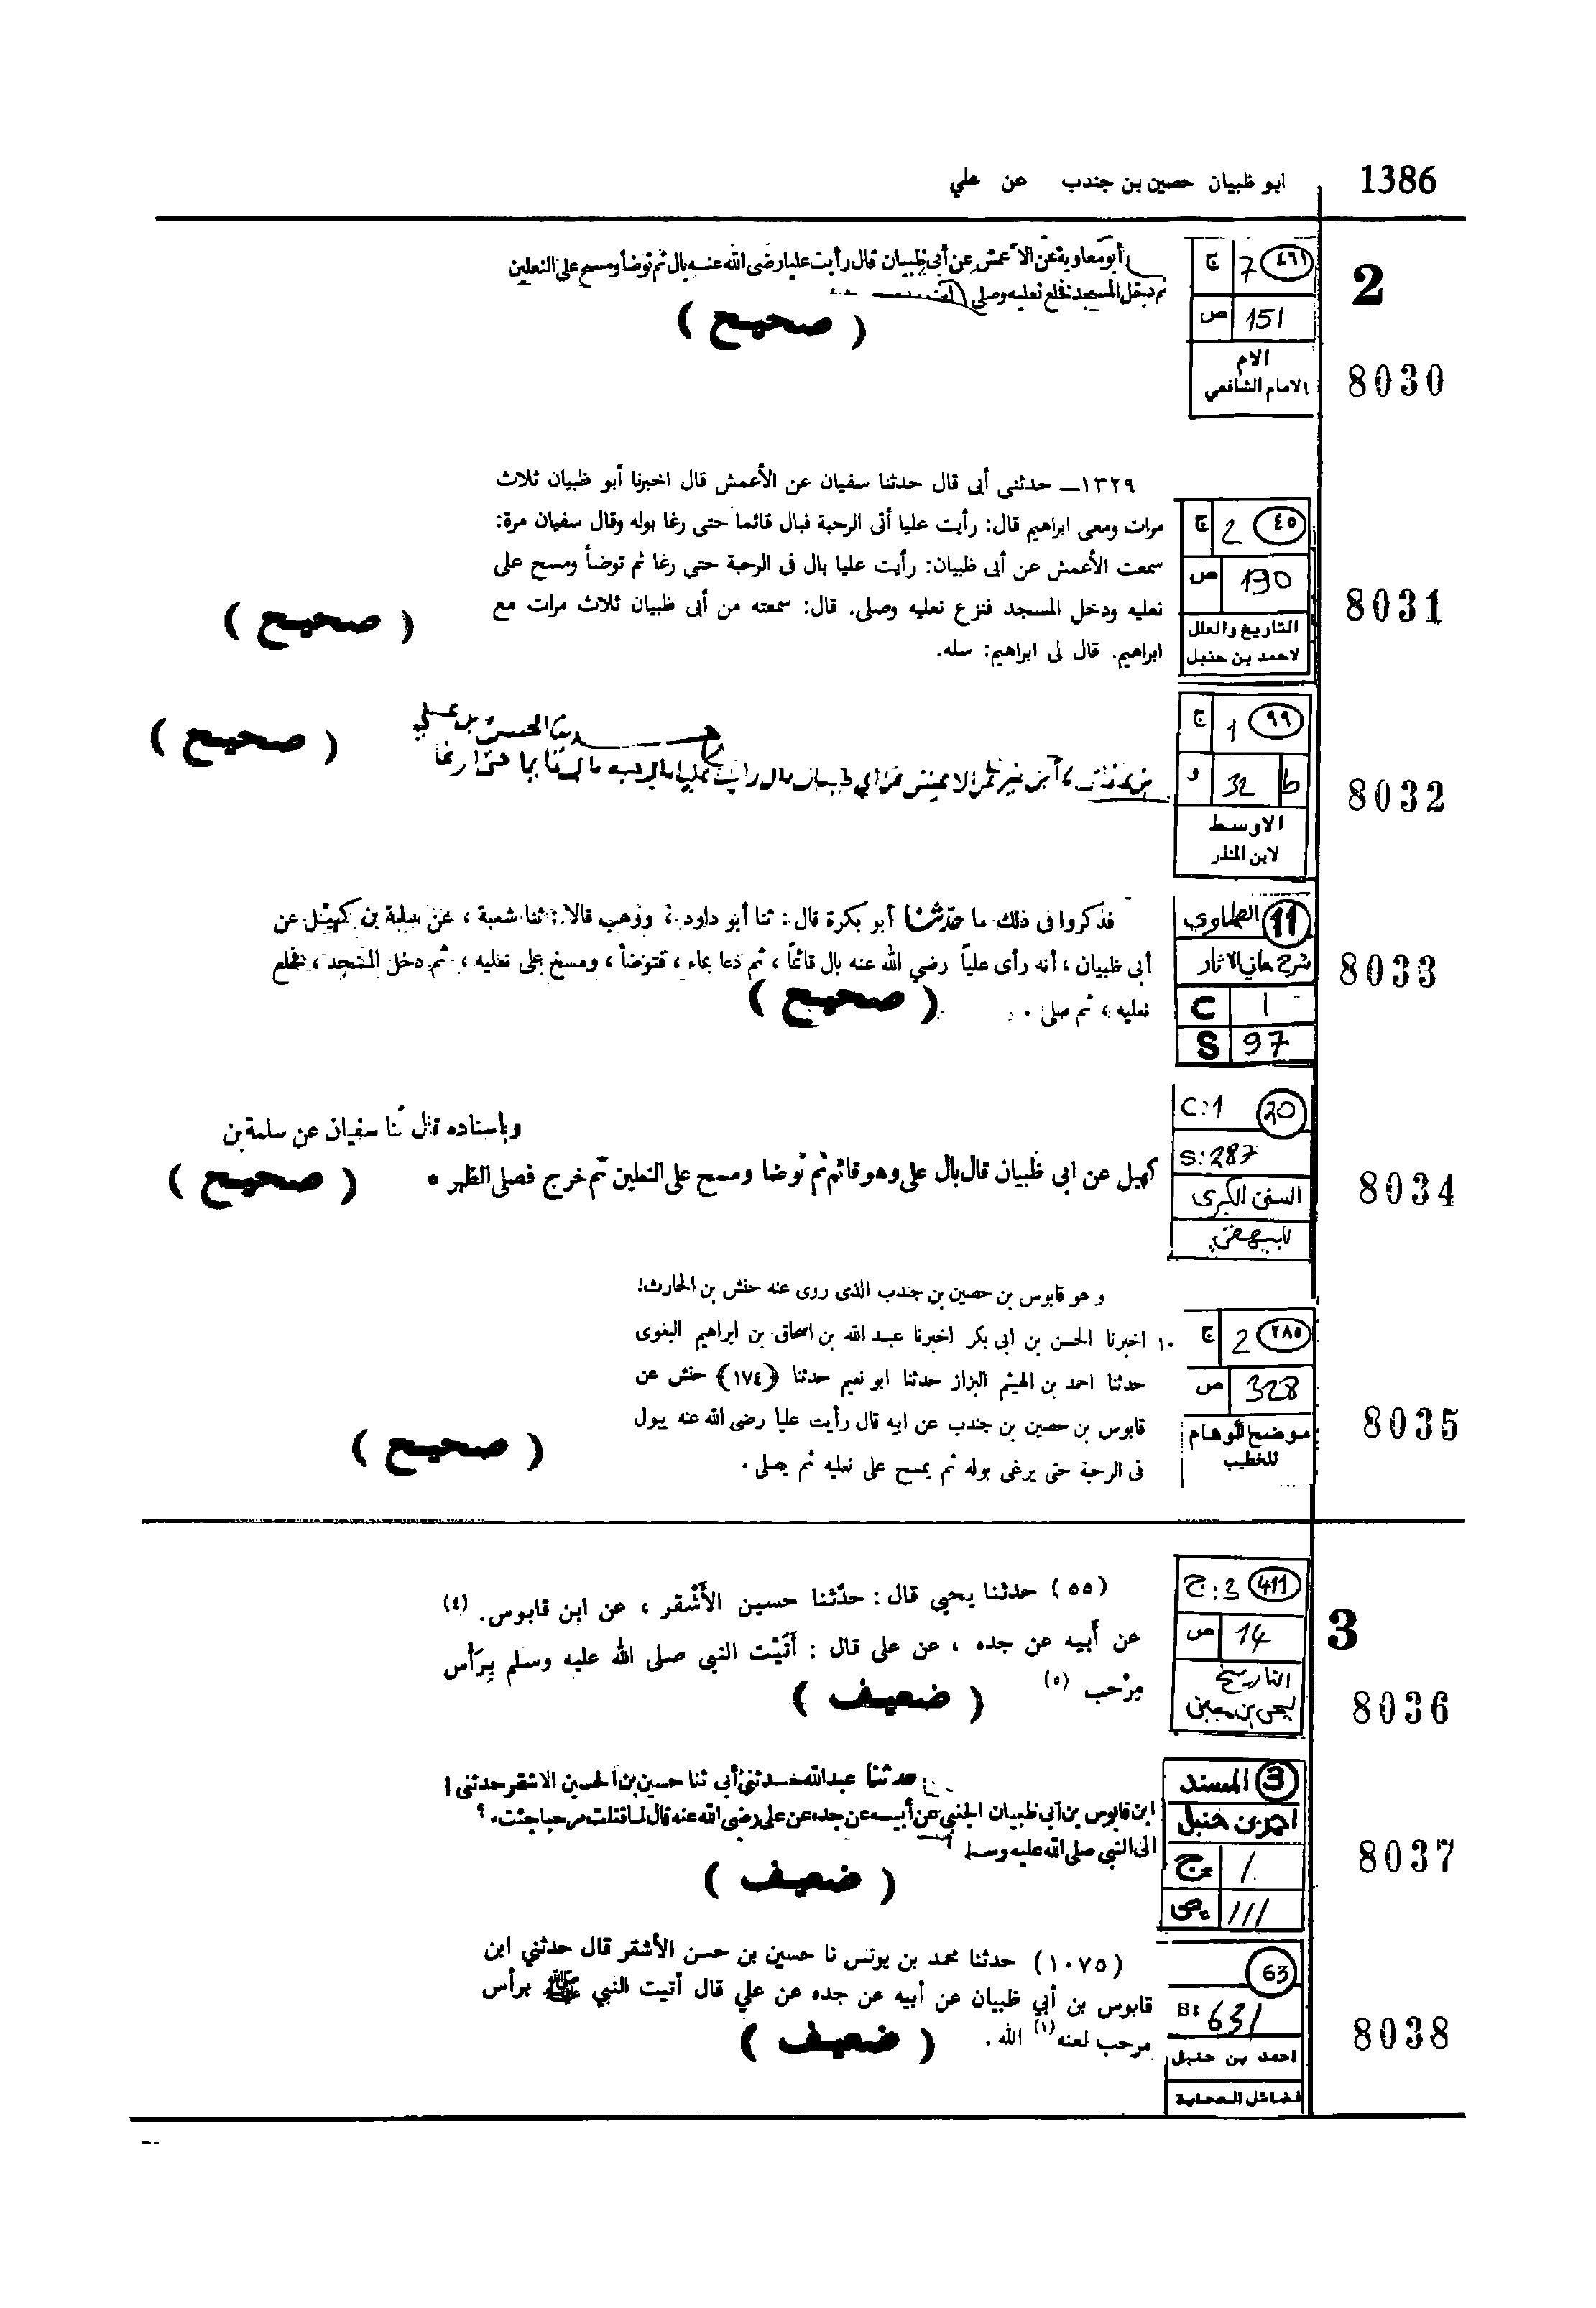 1386 ابو ظبيان حصين بن جندب عن علي
2
8030
٤٦١ 7 ج
151 ص
الام
الامام الشافعي
أبو معاوية عن الأعمش عن أبى ظبيان قال رأيت عليا رضى الله عنه بال ثم توضأ ومسح على النعلين
ثم دخل المسجد فخلع نعليه وصلى
( صحيح )
8031
٤٥ 2 ج
190 ص
التاريخ والعلل
لاحمد بن حنبل
١٣٢٩ـ حدثنى أبى قال حدثنا سفيان عن الأعمش قال اخبرنا أبو ظبيان ثلاث
مرات ومعى ابراهيم قال: رأيت عليا أتى الرحبة فبال قائما حتى رغا بوله وقال سفيان مرة:
سمعت الأعمش عن أبى ظبيان: رأيت عليا بال فى الرحبة حتى رغا ثم توضأ ومسح على
نعليه ودخل المسجد فنزع نعليه وصلى. قال: سمعته من أبى ظبيان ثلاث مرات مع
ابراهيم. قال لى ابراهيم: سله.
( صحيح )
8032
٩٩ 1 ج
b 32 و
الاوسط
لابن المنذر
الحسن بن علي
( صحيح )
8033
11 الطحاوى
شرح معاني الاثار
C 1
S 97
فذكروا فى ذلك ما حدثنا أبو بكرة قال : ثنا أبو داود ، ووهب قالا : ثنا شعبة ، عن سلمة بن كهيل عن
أبى ظبيان ، أنه رأى علياً رضي الله عنه بال قائماً ، ثم دعا بماء ، فتوضأ ، ومسح على نعليه ، ثم دخل المسجد ، فخلع
نعليه ، ثم صلى .
( صحيح )
8034
C:1 20
S:287
السنن الكبرى
للبيهقي
وباسناده قال ثنا سفيان عن سلمة بن
كهيل عن ابى ظبيان قال بال على وهو قائم ثم توضا ومسح على النعلين ثم خرج فصلى الظهر *
( صحيح )
8035
٢٨٥ 2 ج
328 ص
موضح أوهام
للخطيب
و هو قابوس بن حصين بن جندب الذى روى عنه حنش بن الحارث؛
١٠ اخبرنا الحسن بن ابى بكر اخبرنا عبد الله بن اسحاق بن ابراهيم البغوى
حدثنا احمد بن الهيثم البزاز حدثنا ابو نعيم حدثنا (١٧٤) حنش عن
قابوس بن حصين بن جندب عن ابيه قال رأيت عليا رضى الله عنه يبول
فى الرحبة حتى يرغى بوله ثم يمسح على نعليه ثم يصلى .
( صحيح )
3
8036
411 ج:3
14 ص
التاريخ
ليحيى بن معين
(٥٥) حدثنا يحيى قال : حدّثنا حسين الأَشْقر ، عن ابن قابوس. (٤)
عن أَبيه عن جده ، عن على قال : أَتَيْت النبى صلى الله عليه وسلم بِرَأْس
مِرْحب (٥)
( ضعيف )
8037
3 المسند
احمد بن حنبل
ج 1
ص 111
حدثنا عبدالله حدثنى أبي ثنا حسين بن الحسين الاشقر حدثنى
ابن قابوس بن أبى ظبيان الجنبى عن أبيه عن جده عن على رضى الله عنه قال لما قتلت مرحبا جئت
الى النبى صلى الله عليه وسلم
( ضعيف )
8038
63
B: 631
احمد بن حنبل
فضائل الصحابة
(١٠٧٥) حدثنا محمد بن يونس نا حسين بن حسن الأشقر قال حدثني ابن
قابوس بن أبي ظبيان عن أبيه عن جده عن علي قال أتيت النبي ﷺ برأس
مرحب لعنه (١) الله .
( ضعيف )